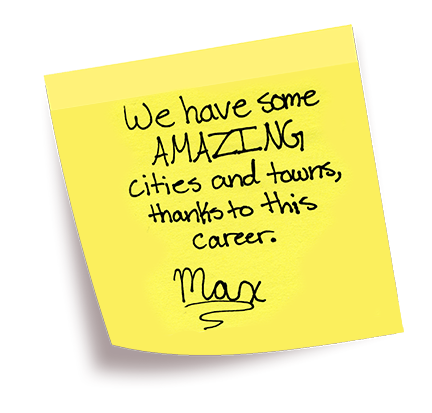 We have some
AMAZING
cities and towns,
thanks to this
career.
Max